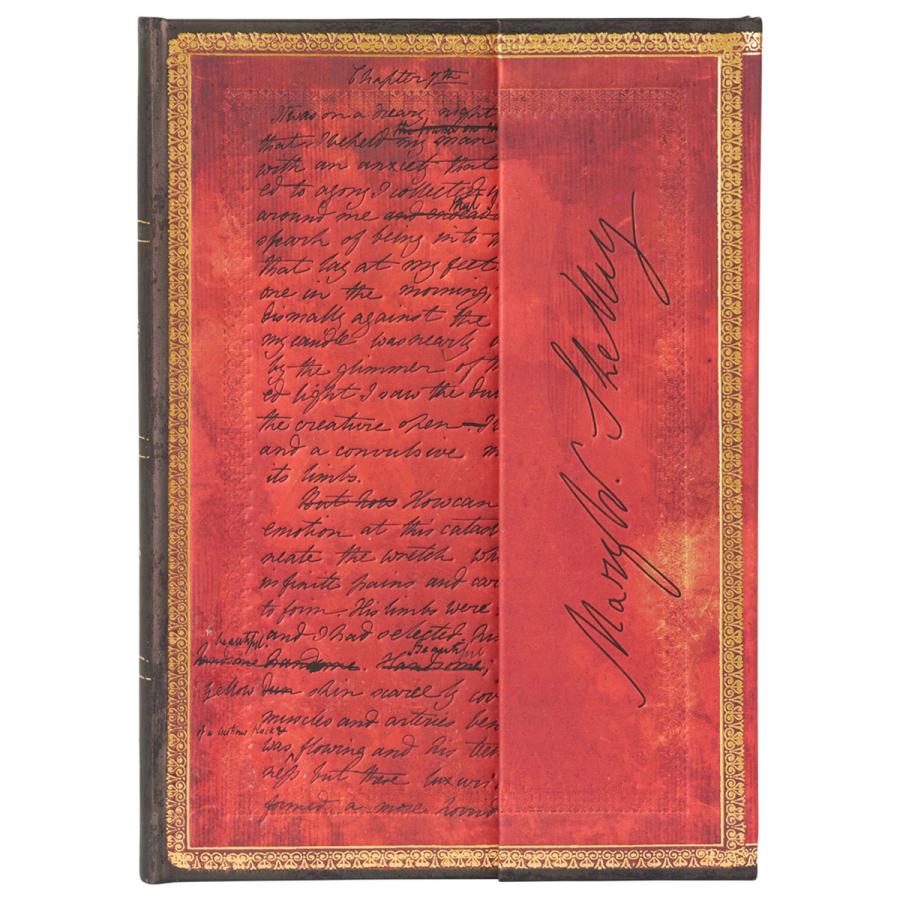 Chapter 7th
It was on a dreary night
that I beheld my man
with an anxiety that
ed to agony I collected
around me and endea
that
spark of being into
that lay at my feet.
one in the morning,
dismally against the
my candle was nearly
by the glimmer of th
ed light I saw the dul
the creature open
and a convulsive m
its limbs.
But how How can
emotion at this catast
neate the wretch wh
infinite pains and car
to form. His limbs were
and I had selected his
beautiful. Beautiful
handsome handsome. Handsome;
yellow dun skin scarcely cov
muscles and arteries ben
of a lustrous black &
was flowing and his teet
ness but these luxuri
formed a more horrid
Mary W. Shelley